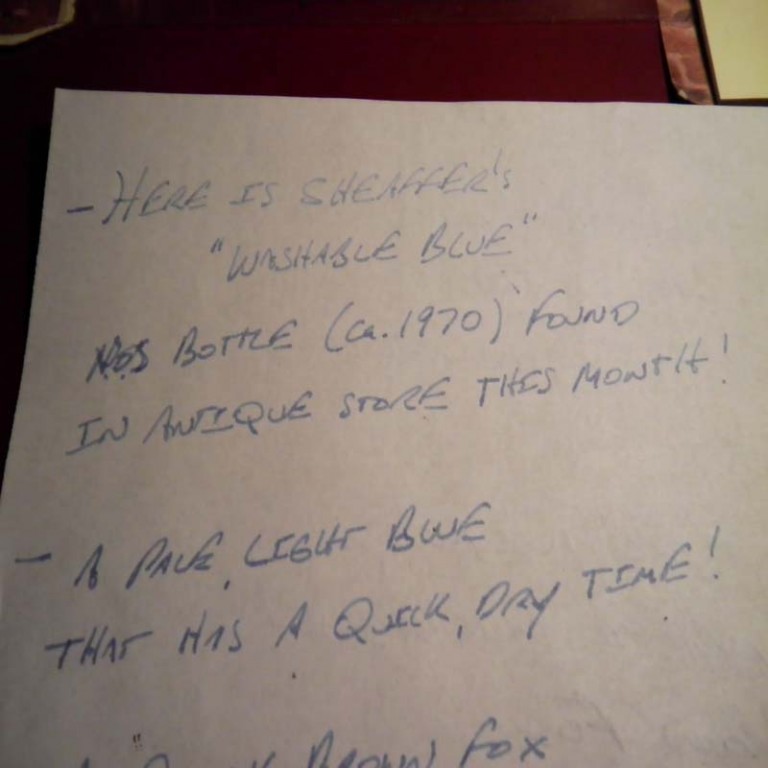 - HERE IS SHEAFFER'S
"WASHABLE BLUE"
NOS BOTTLE (Ca. 1970) FOUND
IN ANTIQUE STORE THIS MONTH!
- A PALE, LIGHT BLUE
THAT HAS A QUICK, DRY TIME!
BROWN FOX